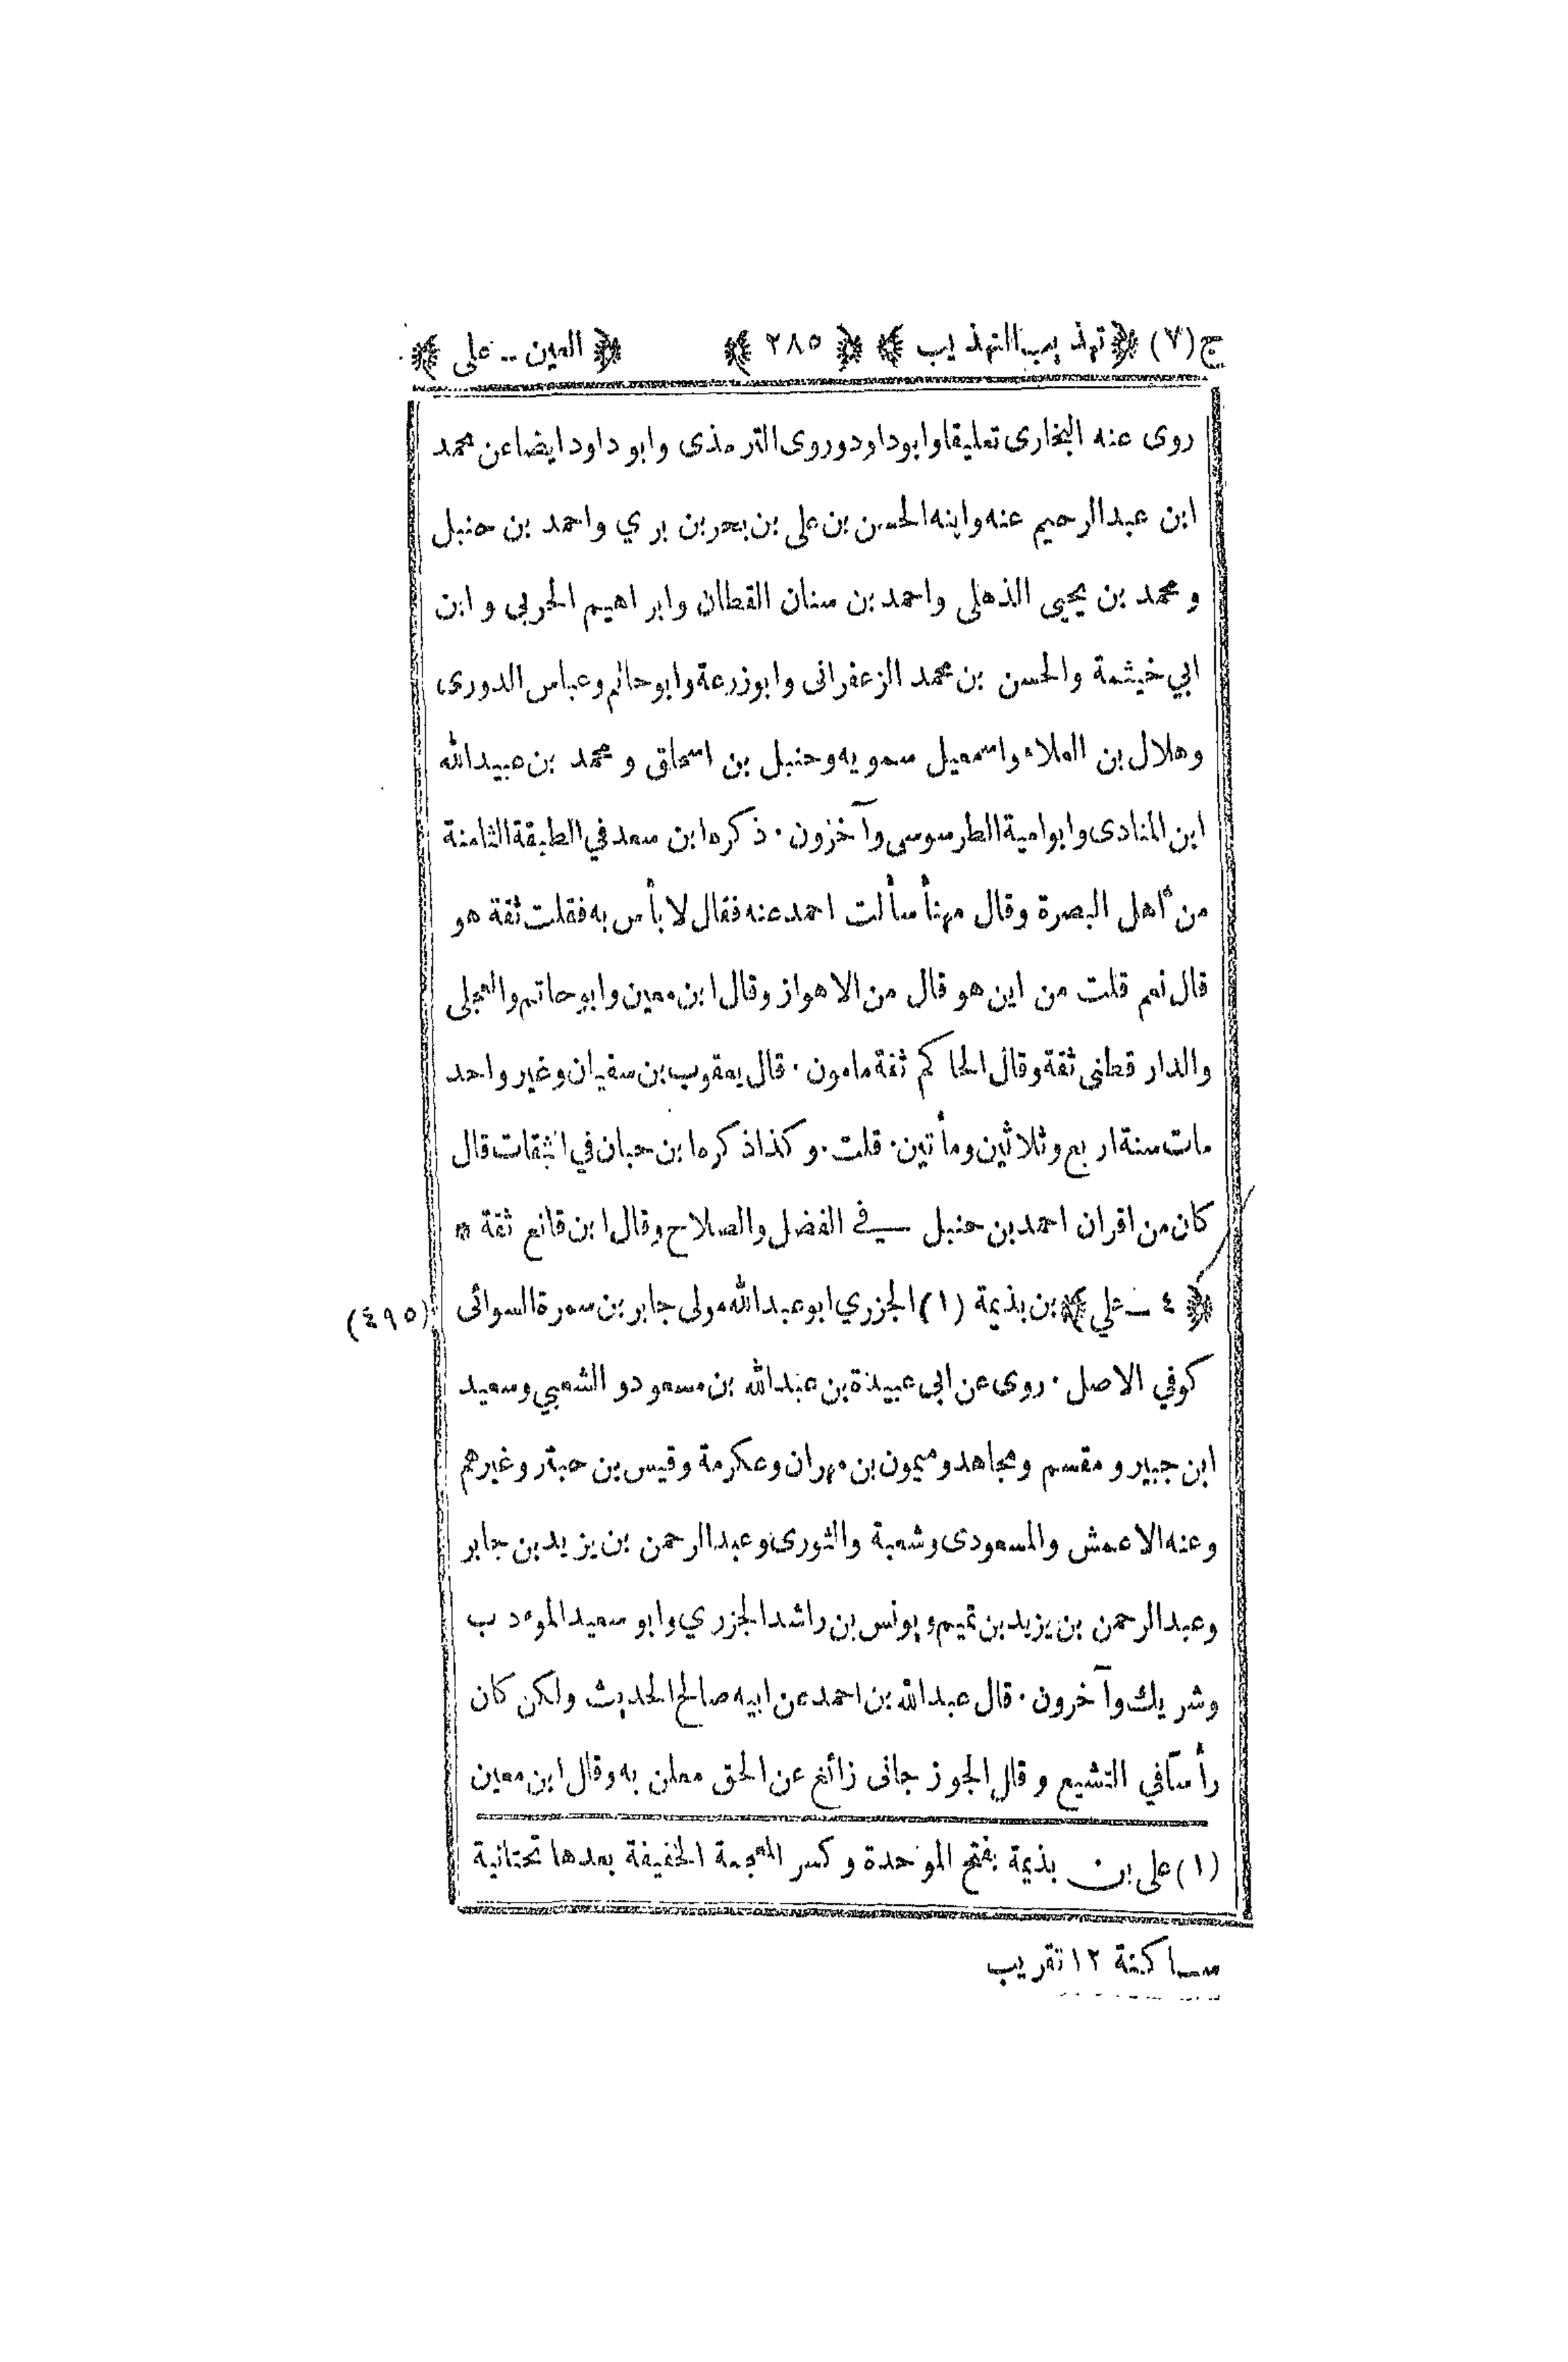 ج(٧) ﴿تهذيب التهذيب﴾ ﴿٢٨٥﴾ ﴿العين -- على﴾
روى عنه البخارى تعليقا وابوداود وروى الترمذى وابو داود ايضاعن محمد
ابن عبدالرحيم عنه وابنه الحسن بن على بن بحر بن بري واحمد بن حنبل
و محمد بن يحيى الذهلى واحمد بن سنان القطان وابراهيم الحربي وابن
ابي خيثمة والحسن بن محمد الزعفرانى وابوزرعة وابوحاتم وعباس الدورى
وهلال بن العلاء واسمعيل سمويه وحنبل بن اسحاق و محمد بن عبيدالله
ابن المنادى وابوامية الطرسوسى وآخرون · ذكره ابن سعد في الطبقة الثامنة
من أهل البصرة وقال مهنأ سألت احمد عنه فقال لا بأس به فقلت ثقة هو
قال نعم قلت من اين هو قال من الاهواز وقال ابن معين وابوحاتم والعجلى
والدار قطنى ثقة وقال الحاكم ثقة مامون · قال يعقوب بن سفيان وغير واحد
مات سنة اربع وثلاثين ومأتين · قلت · وكذا ذكره ابن حبان في الثقات قال
كان من اقران احمد بن حنبل في الفضل والصلاح وقال ابن قانع ثقة *
﴿٤ - علي﴾ بن بذيمة (١) الجزري ابوعبدالله مولى جابر بن سمرة السوائى (٤٩٥)
كوفي الاصل · روى عن ابى عبيدة بن عبدالله بن مسعود و الشعبي وسعيد
ابن جبير و مقسم ومجاهد وميمون بن مهران وعكرمة وقيس بن حبتر وغيرهم
وعنه الاعمش والمسعودى وشعبة والثورى وعبدالرحمن بن يزيد بن جابر
وعبدالرحمن بن يزيد بن تميم ويونس بن راشد الجزري وابو سعيد الموءدب
وشريك وآخرون · قال عبدالله بن احمد عن ابيه صالح الحديث ولكن كان
رأسا في التشيع وقال الجوزجانى زائغ عن الحق معلن به وقال ابن معين
(١) على بن بذيمة بفتح الموحدة وكسر المعجمة الخفيفة بعدها تحتانية
ساكنة ١٢ تقريب